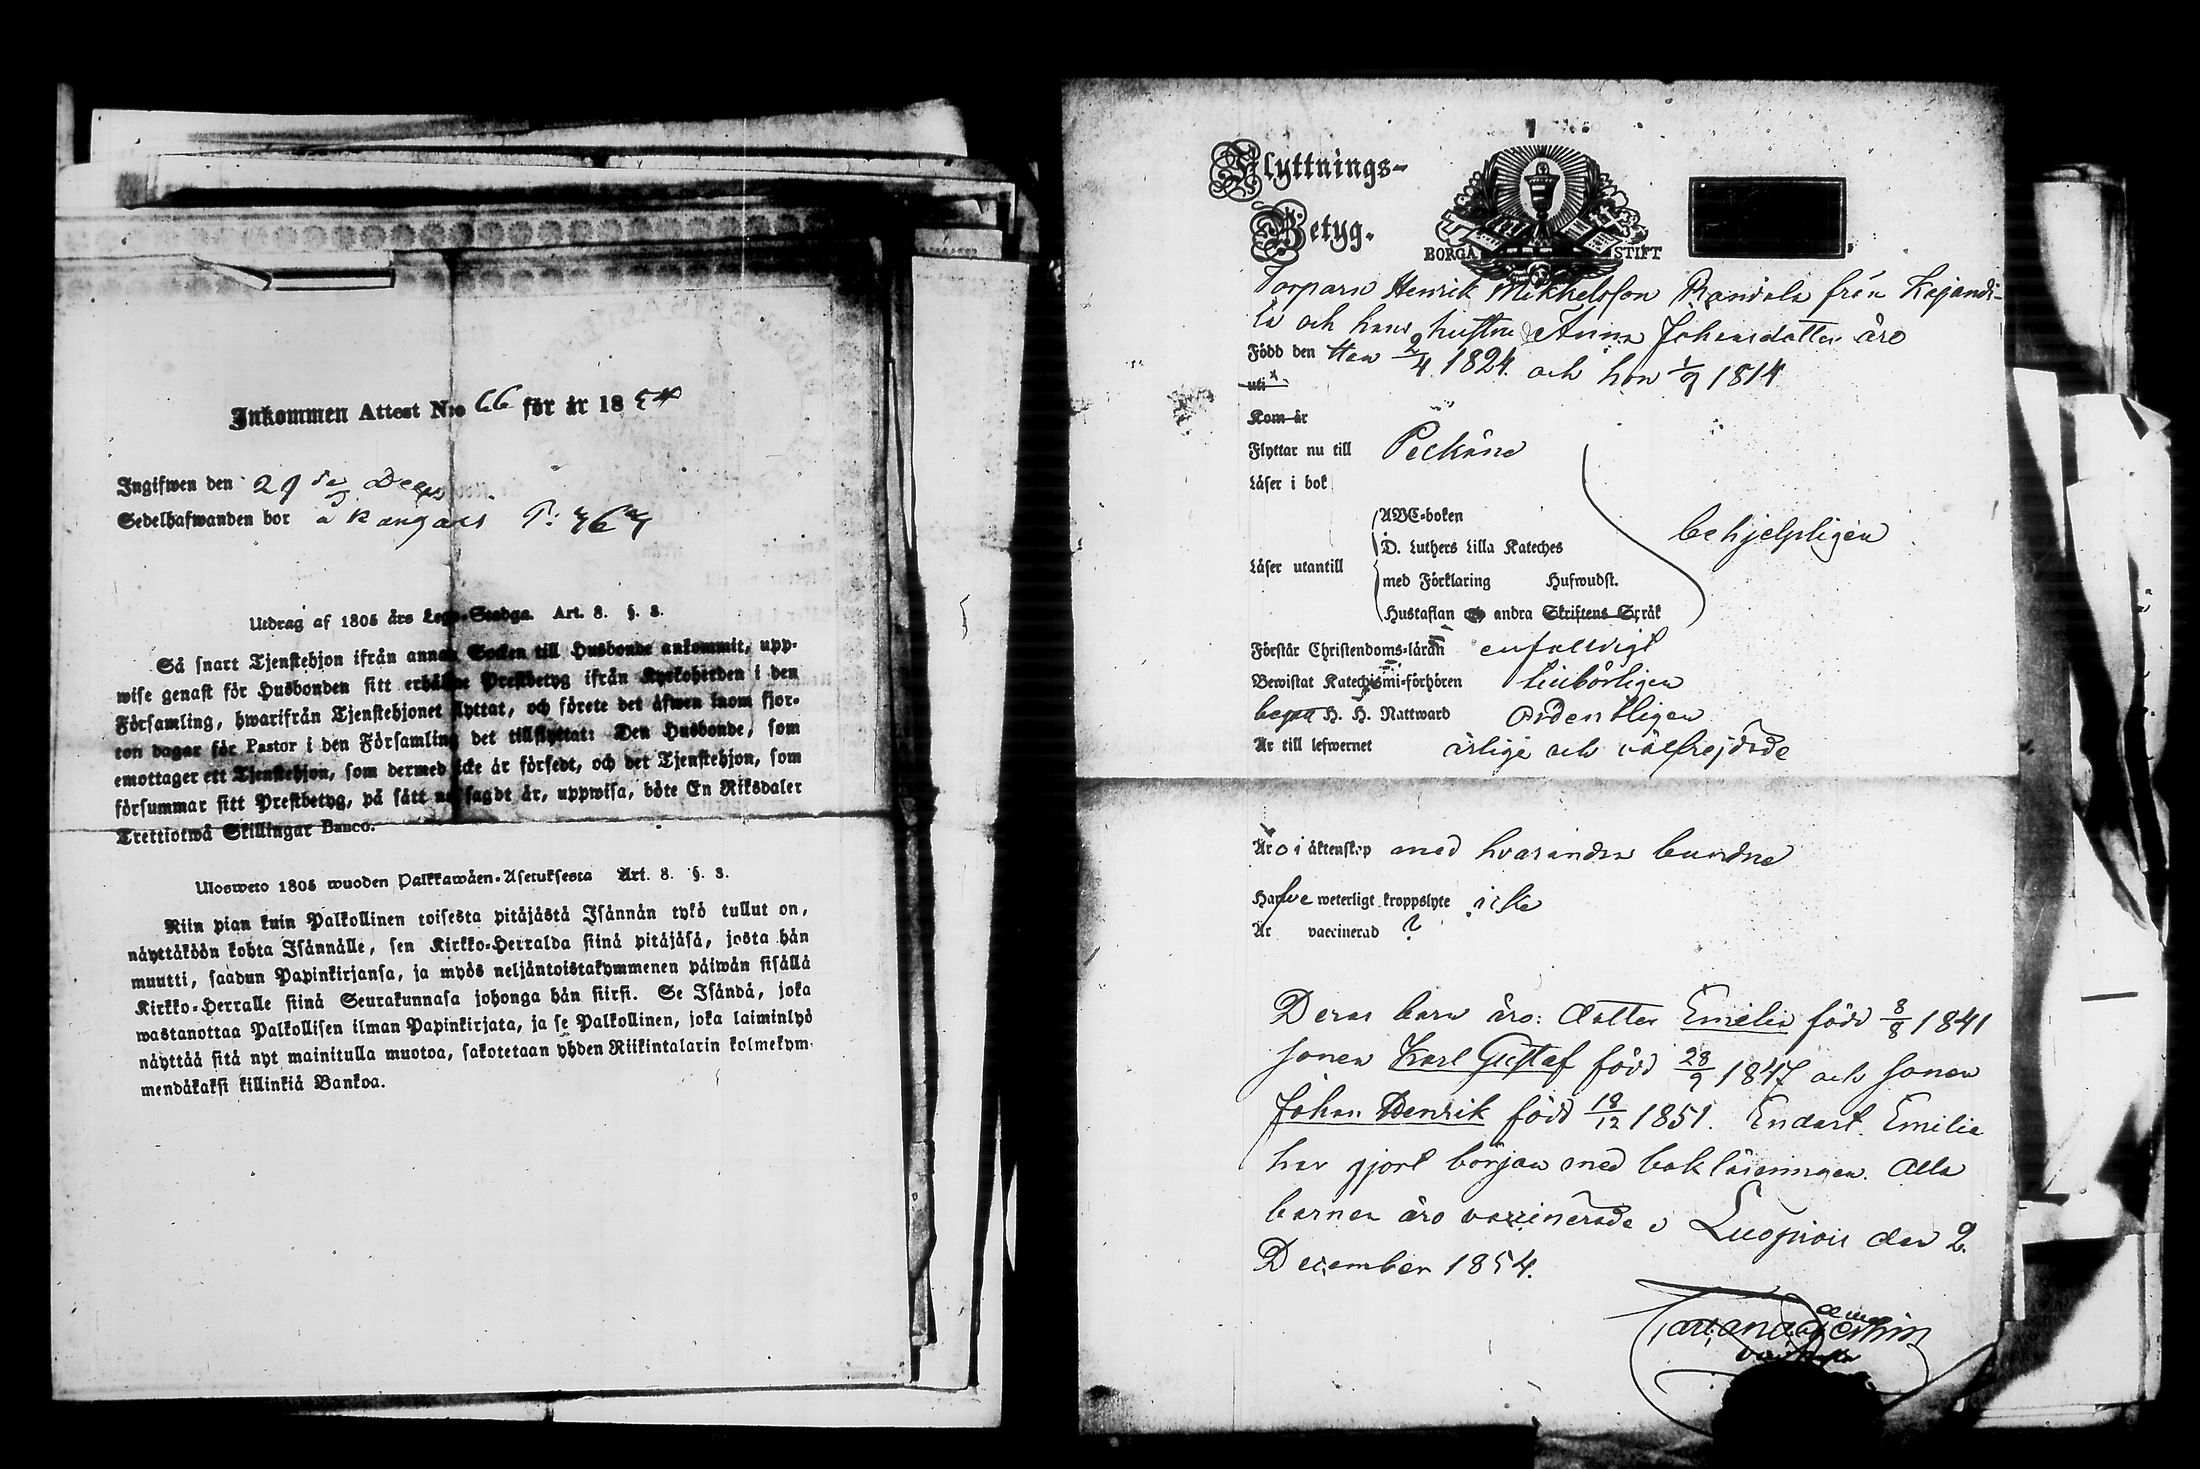 Inkommen Attest N:o 66 för år 1854
Ingifwen den 29 de Dec
Sedelhafwanden bor å Kangais P:
Utdrag af 1805 års Lego-Stadga. Art. 8. §. 3.
Så snart Tjenstehjon ifrån annan Socken till Husbonde ankommit, upp-
wise genast för Husbonden sitt erhållne Prestbetyg ifrån Kyrkoherden i den
Församling, hwarifrån Tjenstehjonet flyttat, och förete det äfwen inom fjor-
ton dagar för Pastor i den Församling det tillflyttat: Den Husbonde, som
emottager ett Tjenstehjon, som dermed icke är försedt, och det Tjenstehjon, som
försummar sitt Prestbetyg, på sätt nu sagdt är, uppwisa, böte En Riksdaler
Trettiotwå Skillingar Banco.
Ulosweto 1805 wuoden Palkkawäen-Asetuksesta Art. 8. §. 3.
Niin pian kuin Palkollinen toisesta pitäjästä Isännän tykö tullut on,
näyttäköön kohta Isännälle, sen Kirkko-Herralda siinä pitäjäsä, josta hän
muutti, saadun Papinkirjansa, ja myös neljäntoistakymmenen päiwän sisällä
Kirkko-Herralle siinä Seurakunnasa johonga hän siirsi. Se Isändä, joka
wastanottaa Palkollisen ilman Papinkirjata, ja se Palkollinen, joka laiminlyö
näyttää sitä nyt mainitulla muotoa, sakotetaan yhden Riikintalarin kolmekym-
mendäkaksi killinkiä Bankoa.
Flyttnings-
Betyg.
BORGÅ STIFT
Torparn Henrik Mikkelsson Randala från Kajandi-
la och hans hustru Anna Johansdotter äro
Född den Han 2/4 1824 och hon 1/9 1814
uti
Kom år
Flyttar nu till Pelkäne
Läser i bok
Läser utantill
ABC-boken
D. Luthers Lilla Kateches
med Förklaring Hufwudst.
Hustaflan och andra Skriftens Språk
behjelpligen
Förstår Christendoms-läran enfaldigt
Bewistat Katechismi-förhören tillbörligen
begått H. H. Nattward ordentligen
Är till lefwernet ärlige och välfrejdade
Äro i äktenskap med hvarandra bundne
Hafwe weterligt kroppslyte icke
Är vaccinerad ?
Deras barn äro: dotter Emilia född 8/8 1841
sonen Karl Gustaf född 28/9 1847 och sonen
Johan Henrik född 18/12 1851. Endast Emilia
har gjort början med bokläsningen. Alla
barnen äro vaccinerade Luopiois den 2.
December 1854.